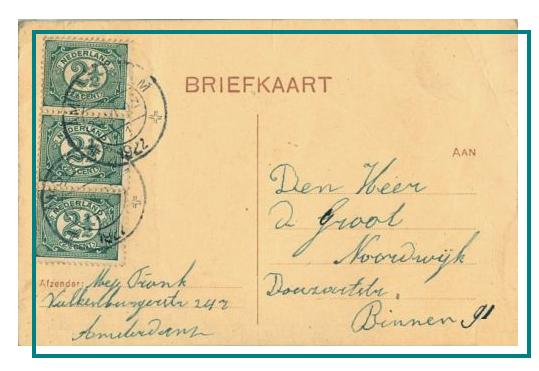 NEDERLAND
2½
2½ CENT
NEDERLAND
2½
NEDERLAND
2½
2½ CENT
1922
BRIEFKAART
AAN
Den Heer
d Groot
Noordwijk
Binnen 91
Afzender: Mej Frank
Valkenburgerstr 247
Amsterdam